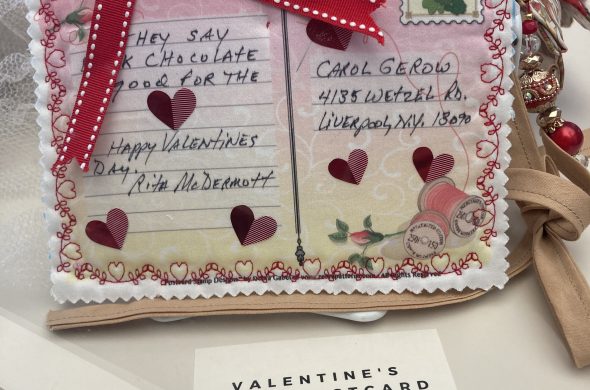 THEY SAY
K CHOCOLATE
GOOD FOR THE
HAPPY VALENTINES
DAY.
RITA McDERMOTT
CAROL GEROW
4135 WETZEL RD.
LIVERPOOL, N.Y. 13090
Postcard Stamp Designs
All Rights Reserved
VALENTINE'S
POSTCARD